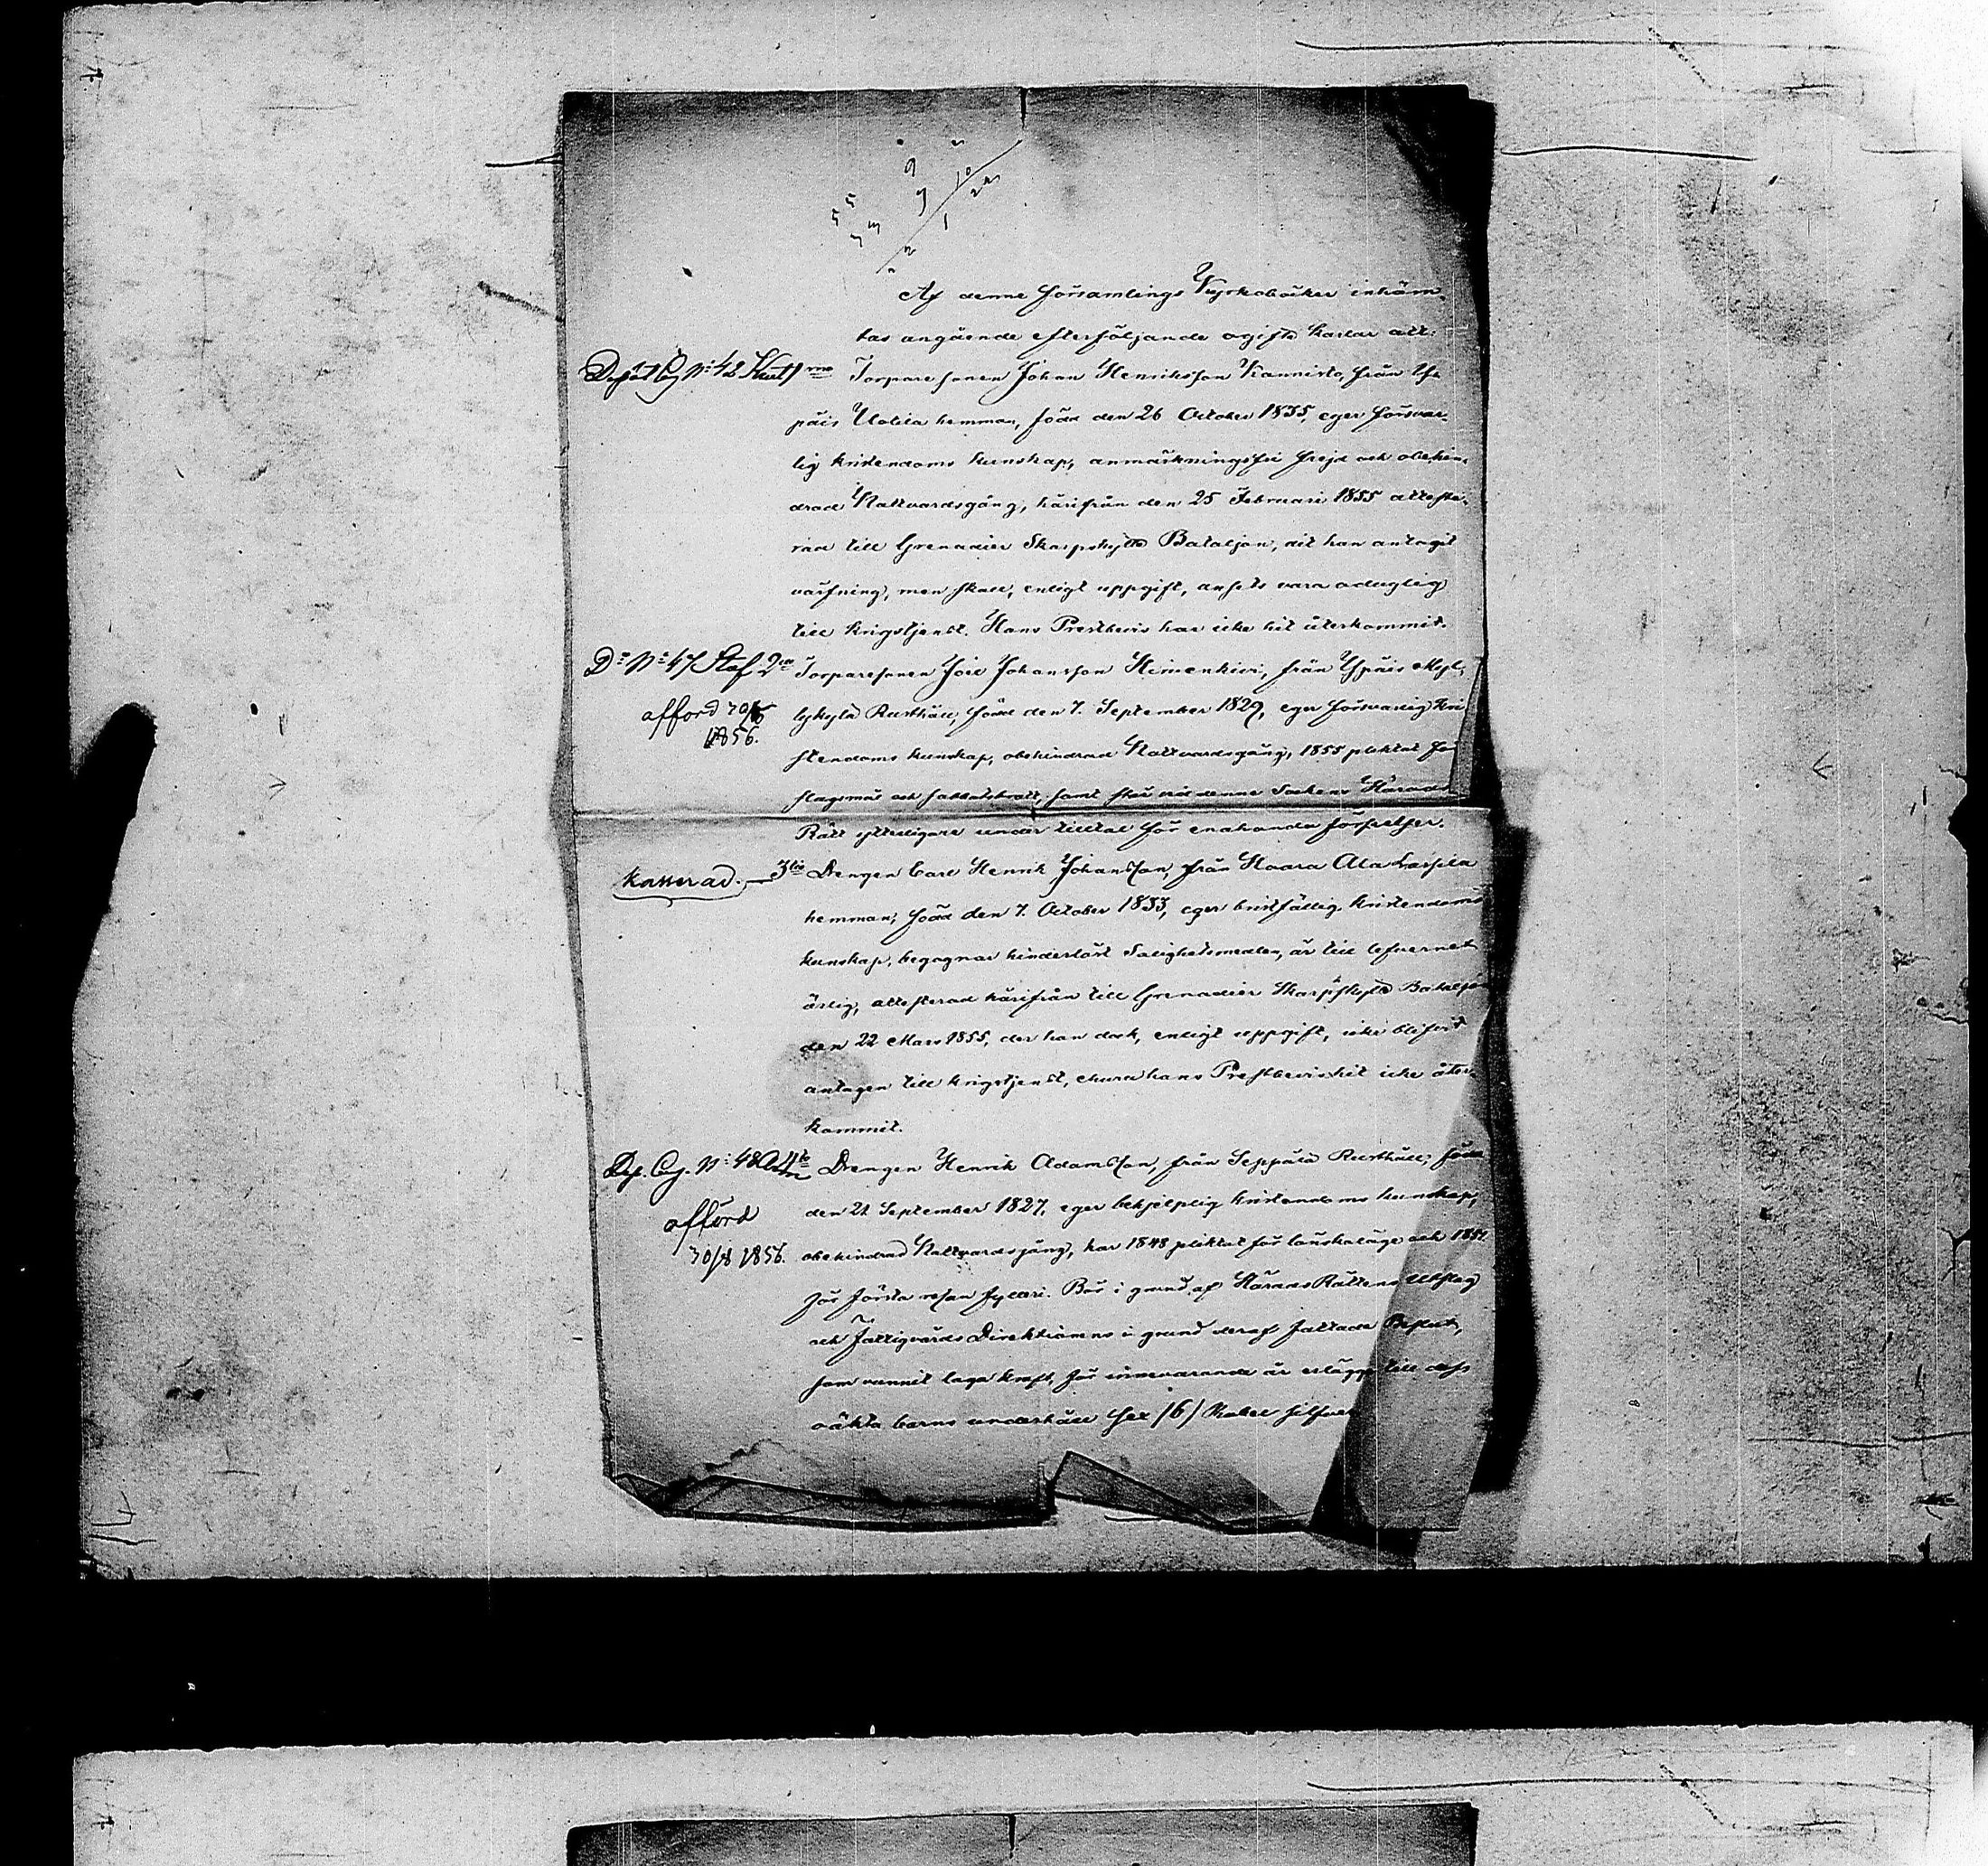 Af denne Församlings Kyrkoböcker inhäm-
tas angående efterföljande ogifte Karlar att:
Depôt Cg N: 42 1mo Torparesonen Johan Henriksson Kannisto, från Y
päis Uotila hemman, född den 26 October 1835, eger försvar-
lig kristendoms kunskap, anmärkningsfri frejd och obehin-
drad Nattvardsgång, härifrån den 25 Februari 1855 atteste-
rad till Grenadier Skarpskytte Bataljon, dit han antagit
värfning, men skall, enligt uppgift, ansets vara oduglig
till krigstjenst. Hans Prestbevis har icke hit återkommit.
Do No 47 2do Torparesonen Joel Johansson Heinenkivi, från Ypäis Myl-
lykylä Rusthåll, född den 7. September 1829, eger försvarlig kri-
afförd 30/
1856.
stendoms kunskap, obehindrad Nattvardsgång, 1855 pliktat för
slagsmål och sabbatsbrott, samt står vid denne Sockens Härads
Rätt ytterligare under tilltal för enahanda förseelser.
Kasserad. 3tio Drengen Carl Henrik Johansson, från Haara Ala
hemman; född den 7. October 1833, eger bristfällig kristendoms
kunskap, begagnar hinderlöst Salighetsmedlen, är till lefvernet
ärlig, attesterad härifrån till Grenadier Skarpskytte Bataljon
den 22 Mars 1855, der han dock, enligt uppgift, icke blifvit
antagen till krigstjenst, ehuru hans Prestbevis hit icke åter-
kommit.
Dep. Cg. N: 48 4to Drengen Henrik Adamsson, från Seppälä Rusthåll; född
den 21 September 1827, eger behjelplig kristendoms kunskap,
afförd
30/8 1856.
obehindrad Nattvardsgång, har 1848 pliktat för lönskaläge och 1854
för första resan fylleri. Bör i grund af HäradsRättens Utslag
och Fattigvårds Direktionens i grund deraf fattade Beslut,
som vunnit laga kraft, för innevarande år erlägga till dess
oäkta barns underhåll Sex /6/ Rubel silfver